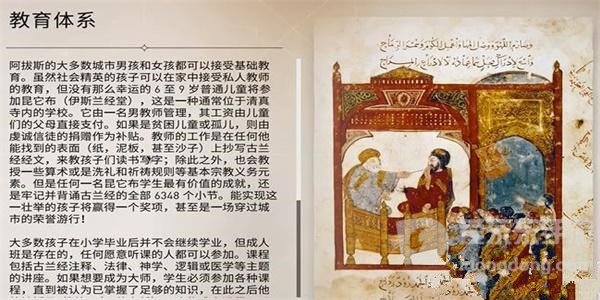 教育体系
阿拔斯的大多数城市男孩和女孩都可以接受基础教
育。虽然社会精英的孩子可以在家中接受私人教师
的教育，但没有那么幸运的 6 至 9 岁普通儿童将参
加昆它布（伊斯兰经堂），这是一种通常位于清真
寺内的学校。它由一名男教师管理，其工资由儿童
们的父母直接支付。如果是贫困儿童或孤儿，则由
虔诚信徒的捐赠作为补贴。教师的工作是在任何他
能找到的表面（纸，泥板，甚至沙子）上抄写古兰
经经文，来教孩子们读书写字；除此之外，也会教
授一些算术或是洗礼和祈祷规则等基本宗教义务元
素。但是任何一名昆它布学生最有价值的成就，还
是牢记并背诵古兰经的全部 6348 个小节。能实现这
一壮举的孩子将赢得一个奖项，甚至是一场穿过城
市的荣誉游行！
大多数孩子在小学毕业后并不会继续学业，但成人
班是存在的，任何愿意听课的人都可以参加。课程
包括古兰经注释、法律、神学、逻辑或医学等主题
的讲座。如果想要成为大师，学生必须参加各种课
程，直到被认为已掌握了足够的知识，在此之后他